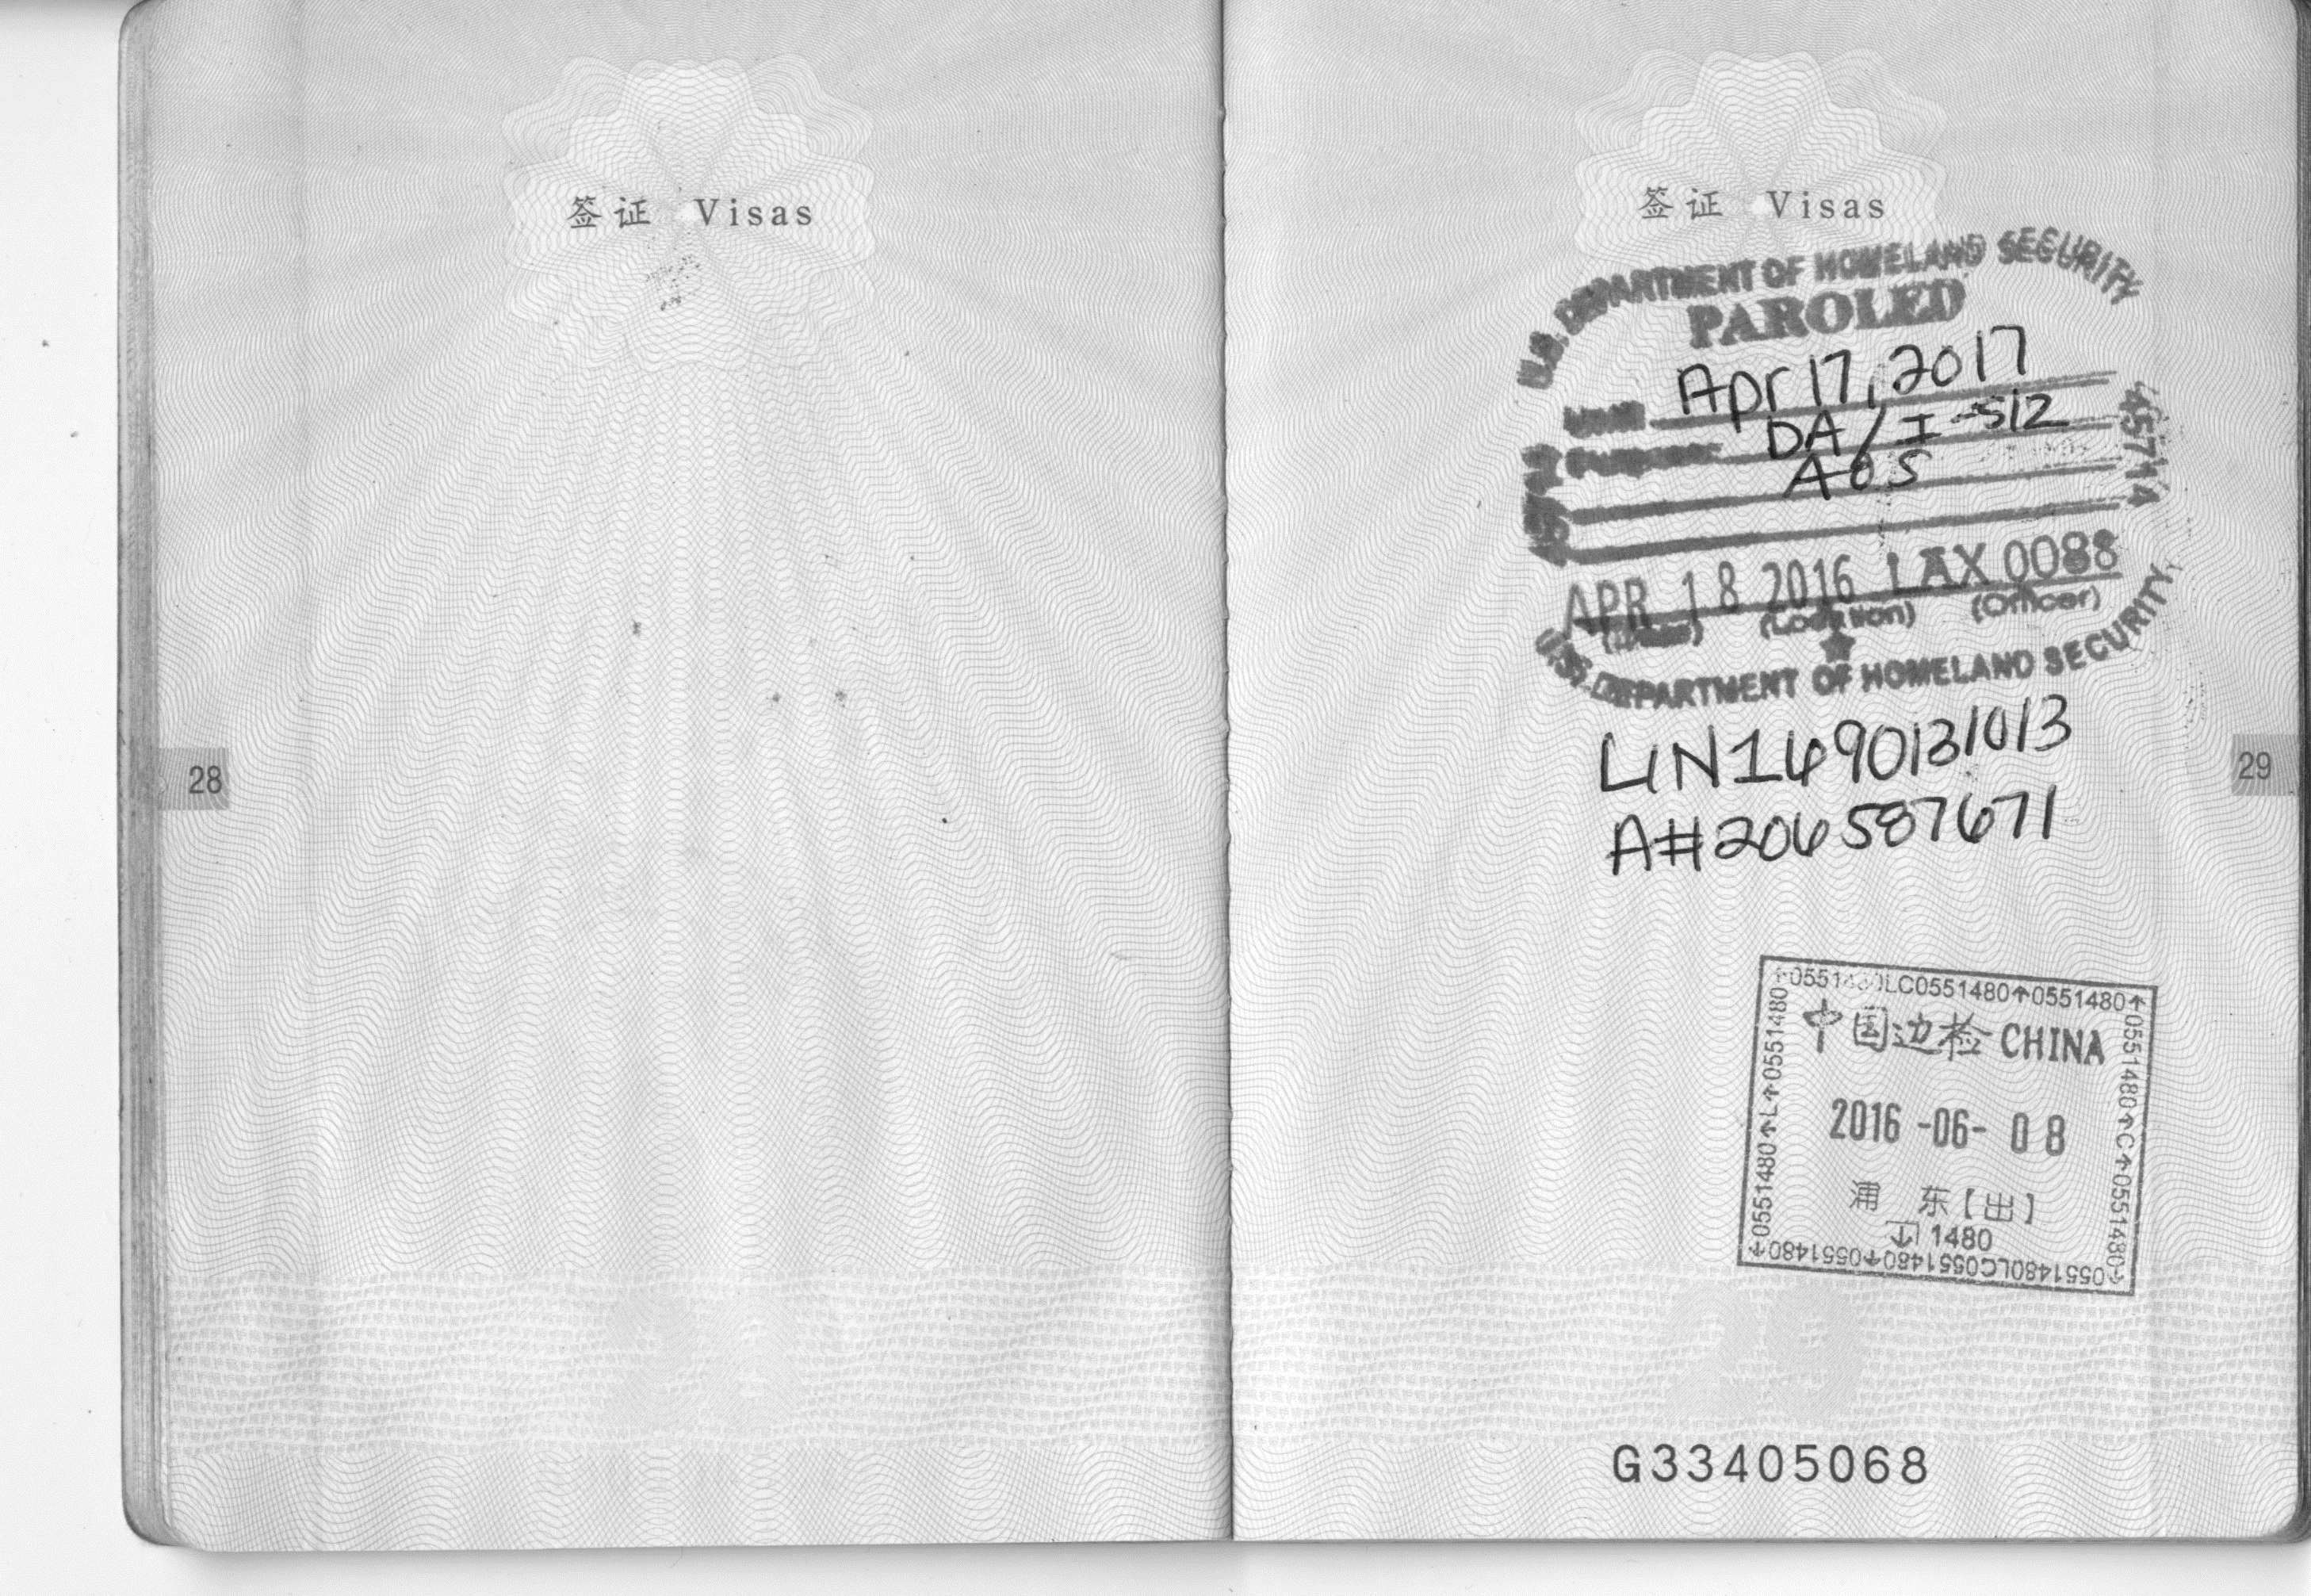 签证 Visas
28
签证 Visas
U.S. DEPARTMENT OF HOMELAND SECURITY
PAROLED
Until Apr 17, 2017
Purpose: DA / I-512
AOS
45714
APR 18 2016 LAX 0088
(Date) (Location) (Officer)
U.S. DEPARTMENT OF HOMELAND SECURITY
LIN1490131013
A#206587671
29
0551480LC0551480↑0551480↑
中国边检 CHINA
2016-06-08
浦东【出】
1480
0551480↑L↑0551480
0551480↑C↑0551480
0551480LC0551480↑0551480↑
G33405068